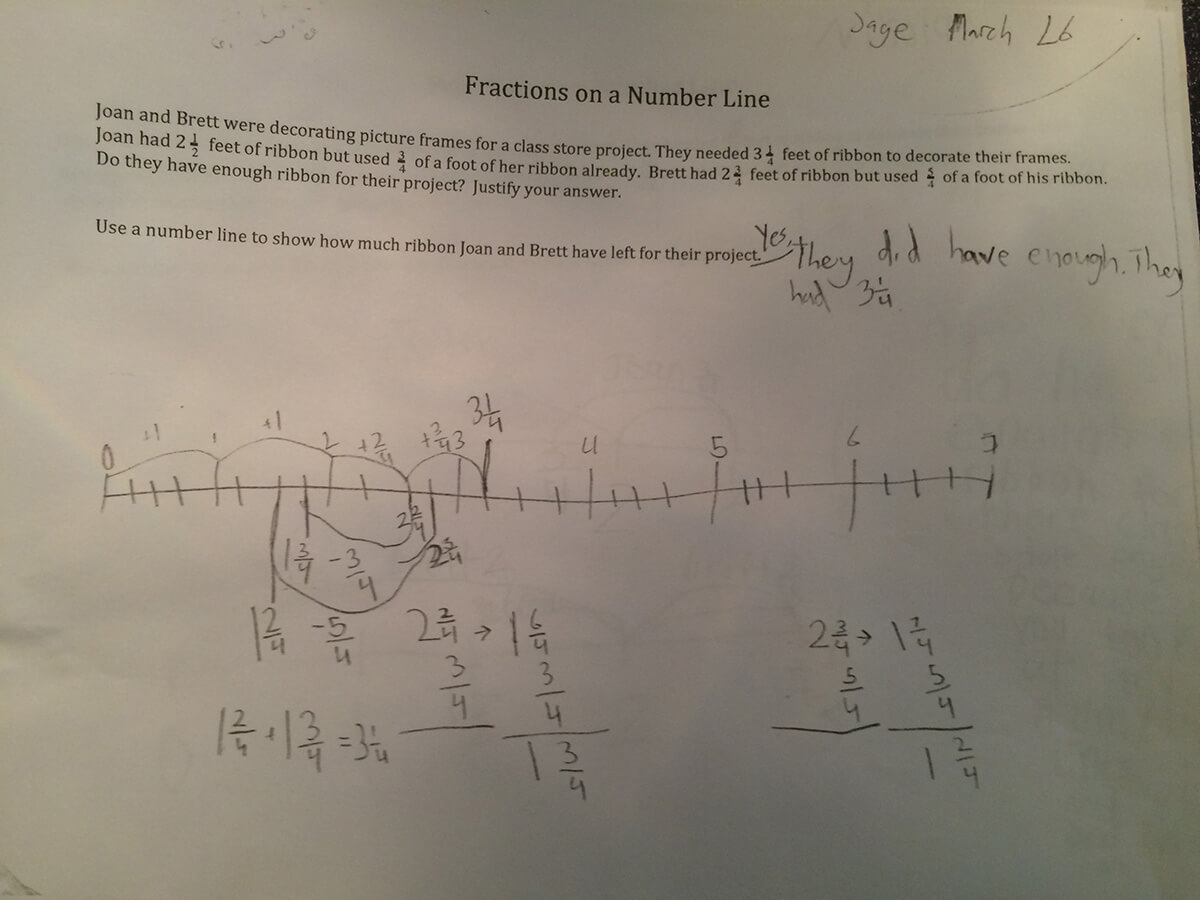 Jage March 26
Fractions on a Number Line
Joan and Brett were decorating picture frames for a class store project. They needed 3 1/4 feet of ribbon to decorate their frames.
Joan had 2 1/2 feet of ribbon but used 3/4 of a foot of her ribbon already. Brett had 2 3/4 feet of ribbon but used 5/4 of a foot of his ribbon.
Do they have enough ribbon for their project? Justify your answer.
Use a number line to show how much ribbon Joan and Brett have left for their project.
Yes, they did have enough. They
had 3 1/4.
+1 +1 +2/4 +3/4 3 1/4
0 1 2 3 4 5 6 7
2 2/4
1 3/4 - 3/4 2 3/4
1 2/4 - 5/4
2 2/4 → 1 6/4
3/4 3/4
1 3/4
2 3/4 → 1 7/4
5/4 5/4
1 2/4
1 2/4 + 1 3/4 = 3 1/4